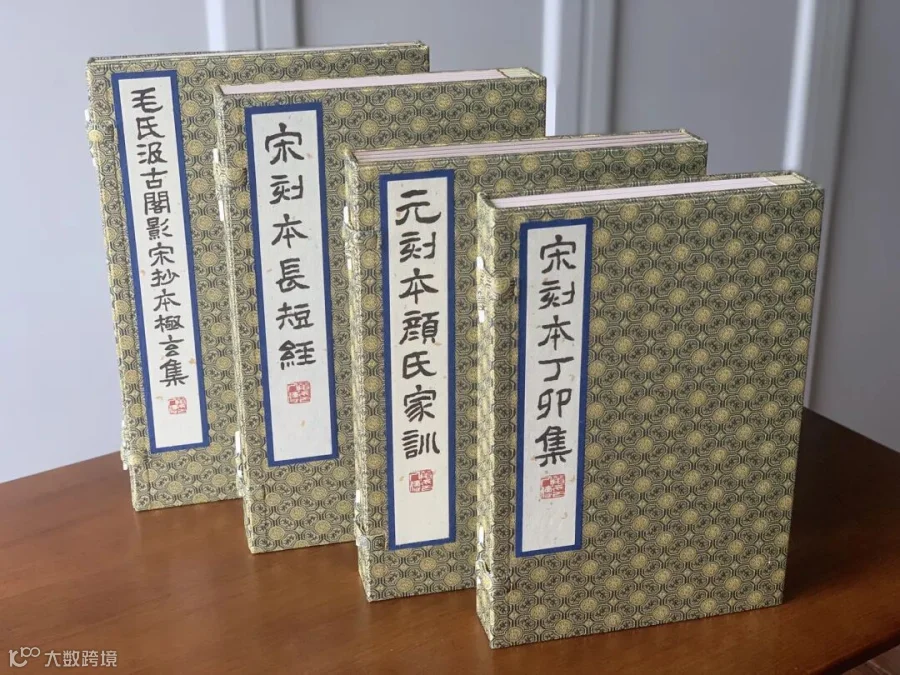 毛氏汲古閣影宋抄本極玄集
宋刻本長短經
元刻本顔氏家訓
宋刻本丁卯集
大数跨境